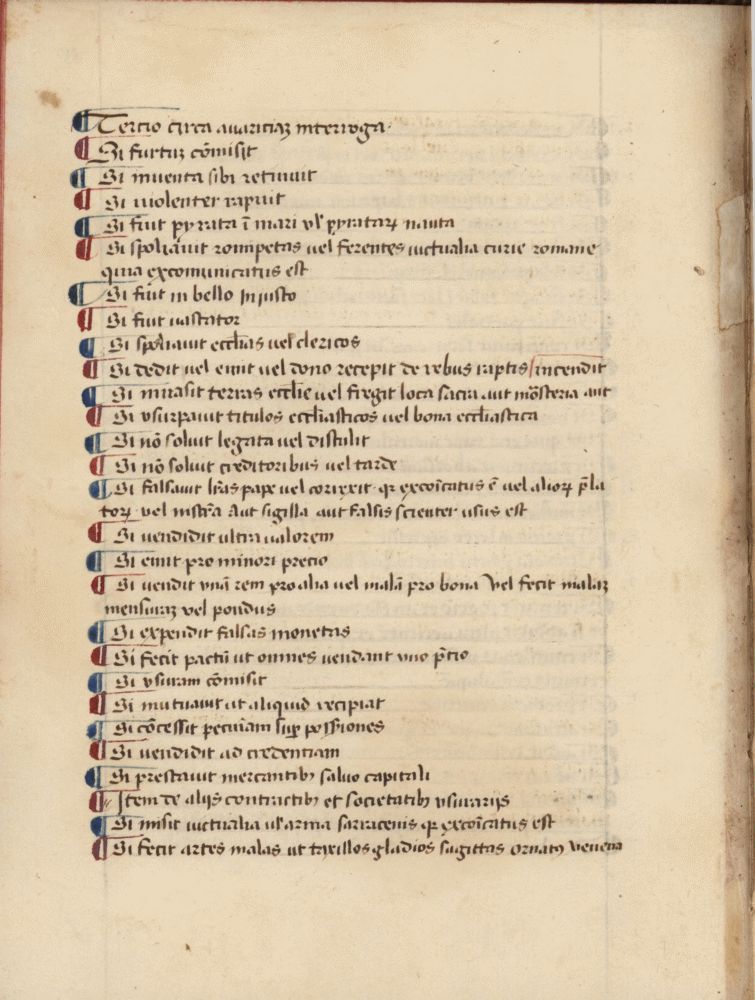 ¶ Tercio circa auariciaꝫ interroga·
¶ Si furtuꝫ cōmisit
¶ Si inuenta sibi retinuit
¶ Si uiolenter rapuit
¶ Si fuit pyrata ī mari vl̓ pyrataꝝ nauta
¶ Si spoliauit romipetas uel ferentes uictualia curie romane
quia excomunicatus est
¶ Si fuit in bello Iniusto
¶ Si fuit uastator
¶ Si spoliauit eccl̄ias uel clericos
¶ Si dedit uel emit uel dono recepit de rebus raptis / incendit
¶ Si inuasit terras ecclīe uel fregit loca sacra aut mōsteria aut
¶ Si vsurpauit titulos eccl̄iasticos uel bona eccl̄iastica
¶ Si nō soluit legata uel distulit
¶ Si nō soluit creditoribus uel tarde
¶ Si falsauit lr̄as pape uel correxit · qꝛ excōicatus ē uel alioꝝ p̄la
toꝝ · vel Aut sigilla aut falsis scienter usus est
¶ Si uendidit ultra ualorem
¶ Si emit pro minori precio
¶ Si uendit vnā rem pro alia uel malā pro bona Vel fecit malaꝫ
mensuraꝫ vel pondus
¶ Si expendit falsas monetas
¶ Si fecit pactū ut omnes uendant vno p̄tio
¶ Si vsuram cōmisit
¶ Si mutuauit ut aliquid recipiat
¶ Si cōcessit pecuniam suꝑ possiones
¶ Si uendidit ad credentiam
¶ Si prestauit mercantibꝫ saluo capitali
¶ Item de alijs contractibꝫ et societatibꝫ vsurarijs
¶ Si misit uictualia vl̓ arma sarracenis qꝛ excōicatus est
¶ Si fecit artes malas ut taxillos gladios sagittas ornatꝰ uenena